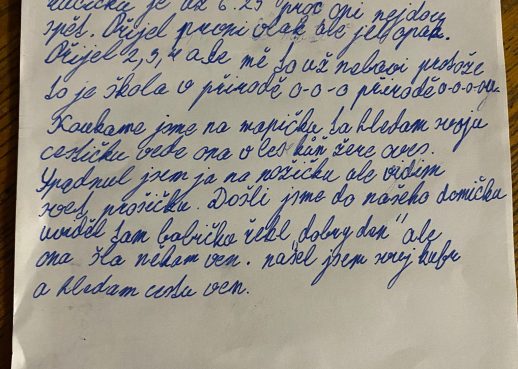 je už 6.25 proč oni nejdou
zpět. Přijel první vlak ale jel opak.
Přijel 2, 3, 4 ale mě to už nebaví protože
to je škola v přírodě o-o-o přírodě o-o-o-o.
Koukame jsme na mapičku ta hledam svoju
cestičku vede ona v les kůň žere oves.
Upadnul jsem ja na nožičku ale vidim
svou prosičku. Došli jsme do našeho domičku
uviděl tam babičko řekl „dobry den" ale
ona šla nekam ven. našel jsem svej kufr
a hledam cestu ven.